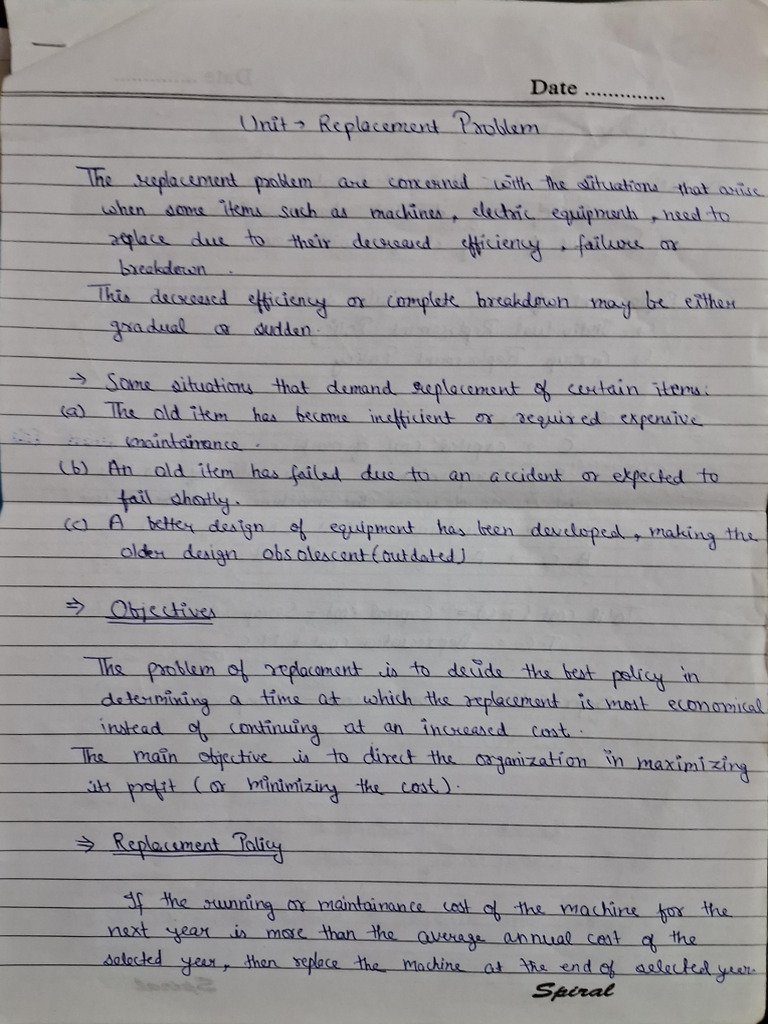 Date ..............
Unit → Replacement Problem
The replacement problem are concerned with the situations that arise
when some items such as machines, electric equipments, need to
replace due to their decreased efficiency, failure or
breakdown.
This decreased efficiency or complete breakdown may be either
gradual or sudden.
→ Some situations that demand replacement of certain items:
(a) The old item has become inefficient or required expensive
maintainance.
(b) An old item has failed due to an accident or expected to
fail shortly.
(c) A better design of equipment has been developed, making the
older design obsolescent (outdated)
⇒ Objectives
The problem of replacement is to decide the best policy in
determining a time at which the replacement is most economical
instead of continuing at an increased cost.
The main objective is to direct the organization in maximizing
its profit (or minimizing the cost).
⇒ Replacement Policy
If the running or maintainance cost of the machine for the
next year is more than the average annual cost of the
selected year, then replace the machine at the end of selected year.
Spiral